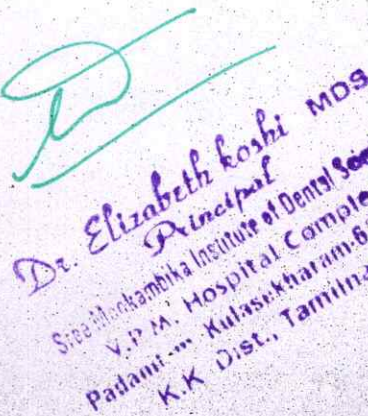 Dr. Elizabeth koshi MDS
Principal
Sree Mookambika Institute of Dental Scie
V.P.M. Hospital Comple
Kulasekharam-6
K.K Dist., Tamilna